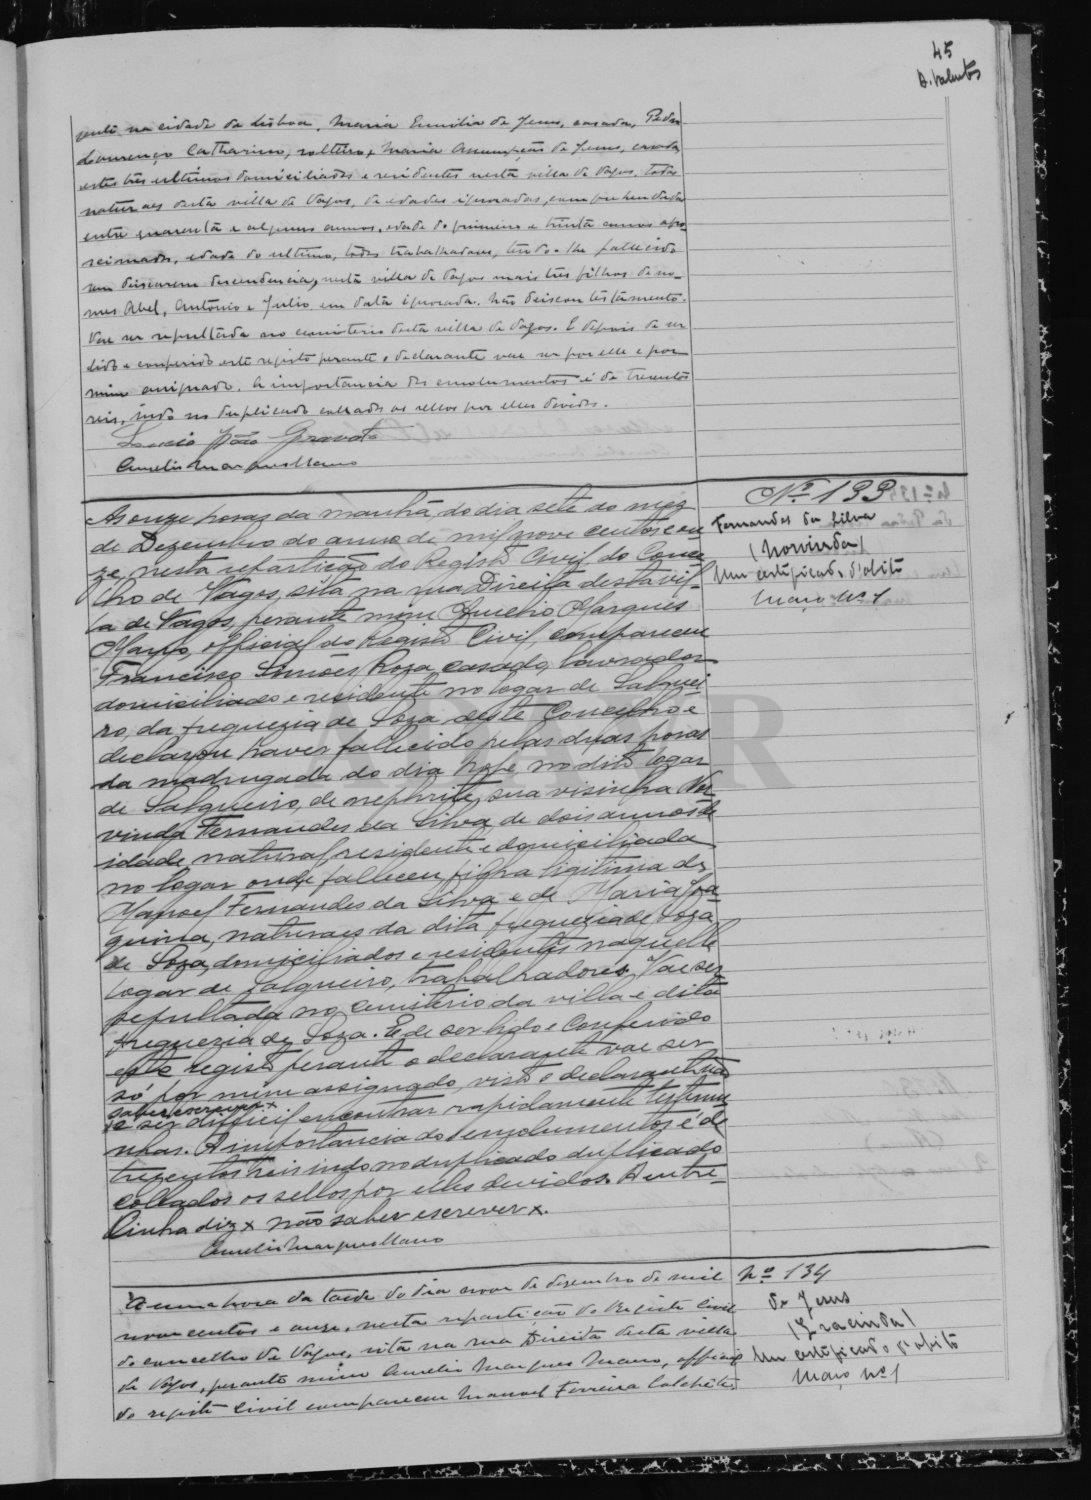 45
sente na cidade de Lisboa, Maria Emilia de Jesus, casada, Pedro
Lourenço Catharino, solteiro, e Maria Assumpção de Jesus, casada
estes tres ultimos domiciliados e residentes nesta villa de Vagos, todos
naturaes desta villa de Vagos, de edades ignoradas, comprehendidas
entre quarenta e alguns annos, edade do primeiro e trinta annos apro-
ximados, edade do ultimo, todos trabalhadores, tendo-lhe fallecido
sem deixarem descendencia, nesta villa de Vagos mais tres filhos de no-
mes Abel, Antonio e Julio em data ignorada. Não deixou testamento.
Vae ser sepultada no cemiterio desta villa de Vagos. E depois de ser
lido e conferido este registo perante o declarante vae ser por elle e por
mim assignado. A importancia dos emolumentos é de trezentos
reis, indo no duplicado collados os sellos por elles devidos.
João Gravato
Aurelio Marques Mano
Nº 133
Fernandes da Silva
(Norvinda)
Um certificado d'obito
Maço nº 1
Ás onze horas da manhã do dia sete do mez
de Dezembro do anno de mil nove centos e on-
ze, nesta repartição do Registo Civil do Conce-
lho de Vagos, sita na rua Direita desta vil-
la de Vagos, perante mim Aurelio Marques
Mano, official do Registo Civil, compareceu
Francisco Simões Roza, casado, lavrador
domiciliado e residente no logar de Salguei-
ro, da freguezia de Soza deste Concelho e
declarou haver fallecido pelas duas horas
da madrugada do dia hoje no dito logar
de Salgueiro, de nephrite, sua visinha Nor-
vinda Fernandes da Silva, de dois annos de
idade, natural, residente e domiciliada
no logar onde falleceu, filha legitima de
Manoel Fernandes da Silva e de Maria Joa-
quina, naturaes da dita freguezia de Soza
de Soza, domiciliados e residentes naquelle
logar de Salgueiro, trabalhadores. Vae ser
sepultada no cemiterio da villa e dita
freguezia de Soza. E de ser lido e conferido
este registo perante o declarante vae ser
só por mim assignado, visto o declarante não
saber escrever x
e ser dificil encontrar rapidamente testemu-
nhas. A importancia dos emolumentos é de
trezentos reis indo no duplicado duplicado
collados os sellos por elles devidos. A entre-
linha diz x não saber escrever x.
Aurelio Marques Mano
Nº 134
de Jesus
(Gracinda)
Um certificado d'obito
Maço nº 1
Á uma hora da tarde do dia nove de dezembro de mil
nove centos e onze, nesta repartição do Registo Civil
do concelho de Vagos, sita na rua Direita desta villa
de Vagos, perante mim Aurelio Marques Mano, official
do registo civil compareceu Manoel Ferreira